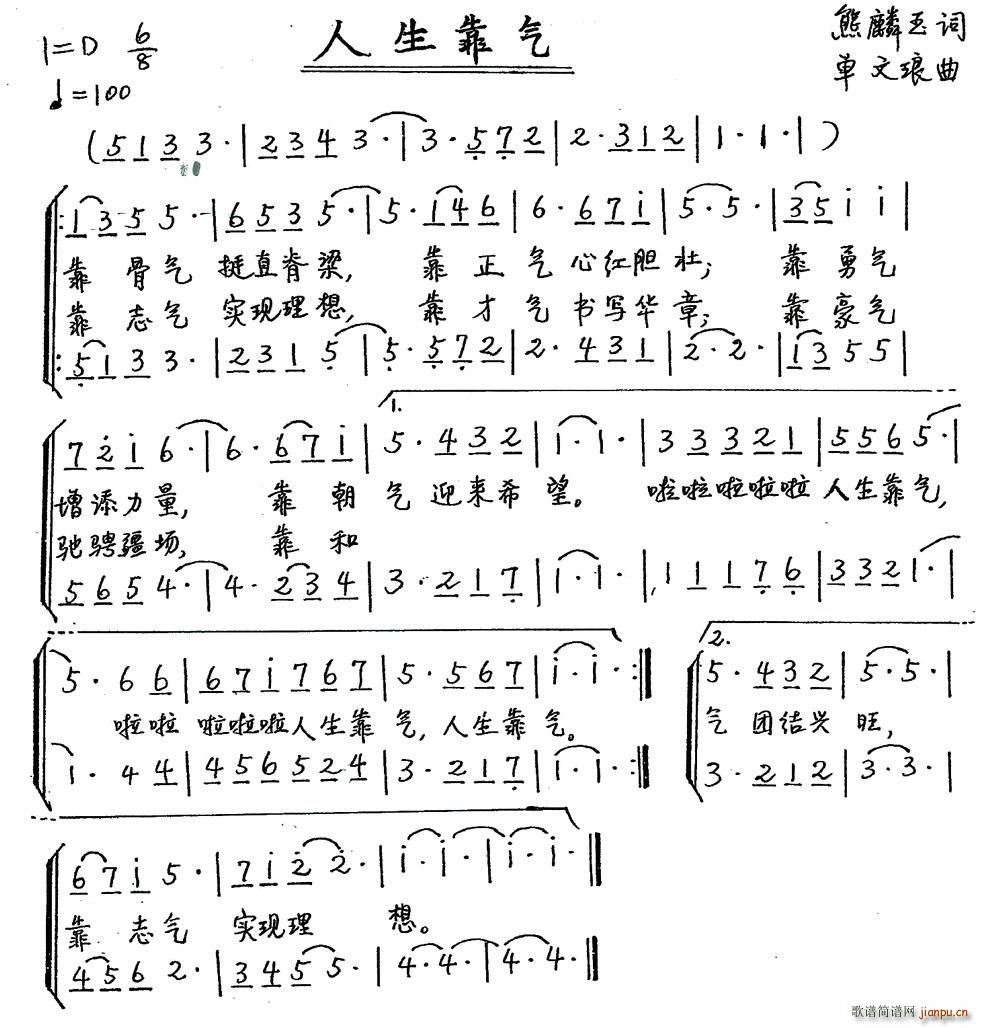 人生靠气
熊麟玉词
单文琅曲
1=D 6/8
♩=100
(5 1 3 3·|2 3 4 3·|3·5 7 2|2·3 1 2|1·1·|)
:1 3 5 5·|6 5 3 5·|5·1 4 6|6·6 7 i|5·5·|3 5 i i|
靠骨气 挺直脊梁, 靠正气心红胆壮; 靠勇气
靠志气 实现理想, 靠才气书写华章; 靠豪气
:5 1 3 3·|2 3 1 5·|5·5 7 2|2·4 3 1|2·2·|1 3 5 5|
1.
7 2 i 6·|6·6 7 i|5·4 3 2|1·1·|3 3 3 2 1|5 5 6 5·|
增添力量, 靠朝气迎来希望。 啦啦啦啦啦人生靠气,
驰骋疆场, 靠和
5 6 5 4·|4·2 3 4|3·2 1 7|1·1·|1 1 1 7 6|3 3 2 1·|
2.
5·6 6|6 7 i 7 6 7|5·5 6 7|i·i·:‖ 5·4 3 2|5·5·|
啦啦 啦啦啦人生靠气,人生靠气。 气团结兴旺,
1·4 4|4 5 6 5 2 4|3·2 1 7|1·1·:‖ 3·2 1 2|3·3·|
6 7 i 5·|7 i 2 2·|i·i·|i·i·‖
靠志气 实现理 想。
4 5 6 2·|3 4 5 5·|4·4·|4·4·‖
歌谱简谱网 jianpu.cn